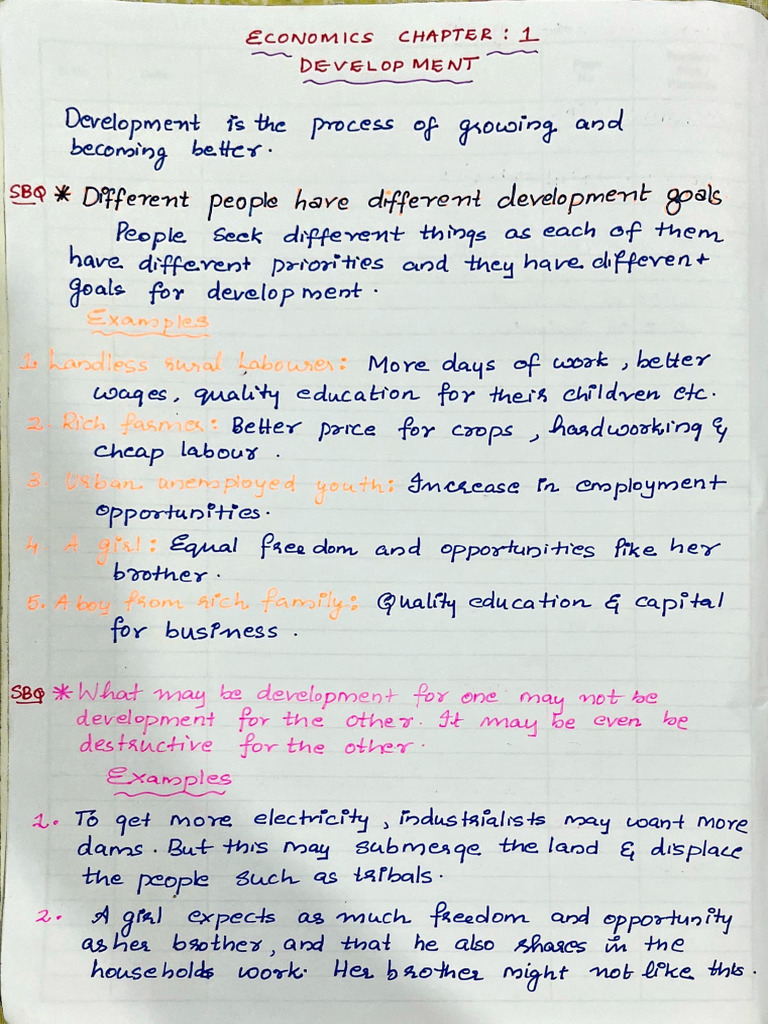 ECONOMICS CHAPTER : 1
DEVELOPMENT
Development is the process of growing and
becoming better.
SBQ * Different people have different development goals
People seek different things as each of them
have different priorities and they have different
goals for development.
Examples
1. Landless rural Labourer: More days of work, better
wages, quality education for their children etc.
2. Rich farmer: Better price for crops, hardworking &
cheap labour.
3. Urban unemployed youth: Increase in employment
opportunities.
4. A girl: Equal freedom and opportunities like her
brother.
5. A boy from rich family: Quality education & capital
for business.
SBQ * What may be development for one may not be
development for the other. It may be even be
destructive for the other.
Examples
1. To get more electricity, industrialists may want more
dams. But this may submerge the land & displace
the people such as tribals.
2. A girl expects as much freedom and opportunity
as her brother, and that he also shares in the
households work. Her brother might not like this.